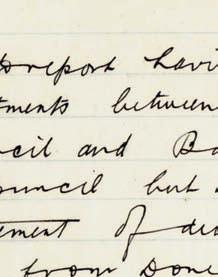 report havi
tments between
ncil and Ba
ouncil but
ement of di
from Don